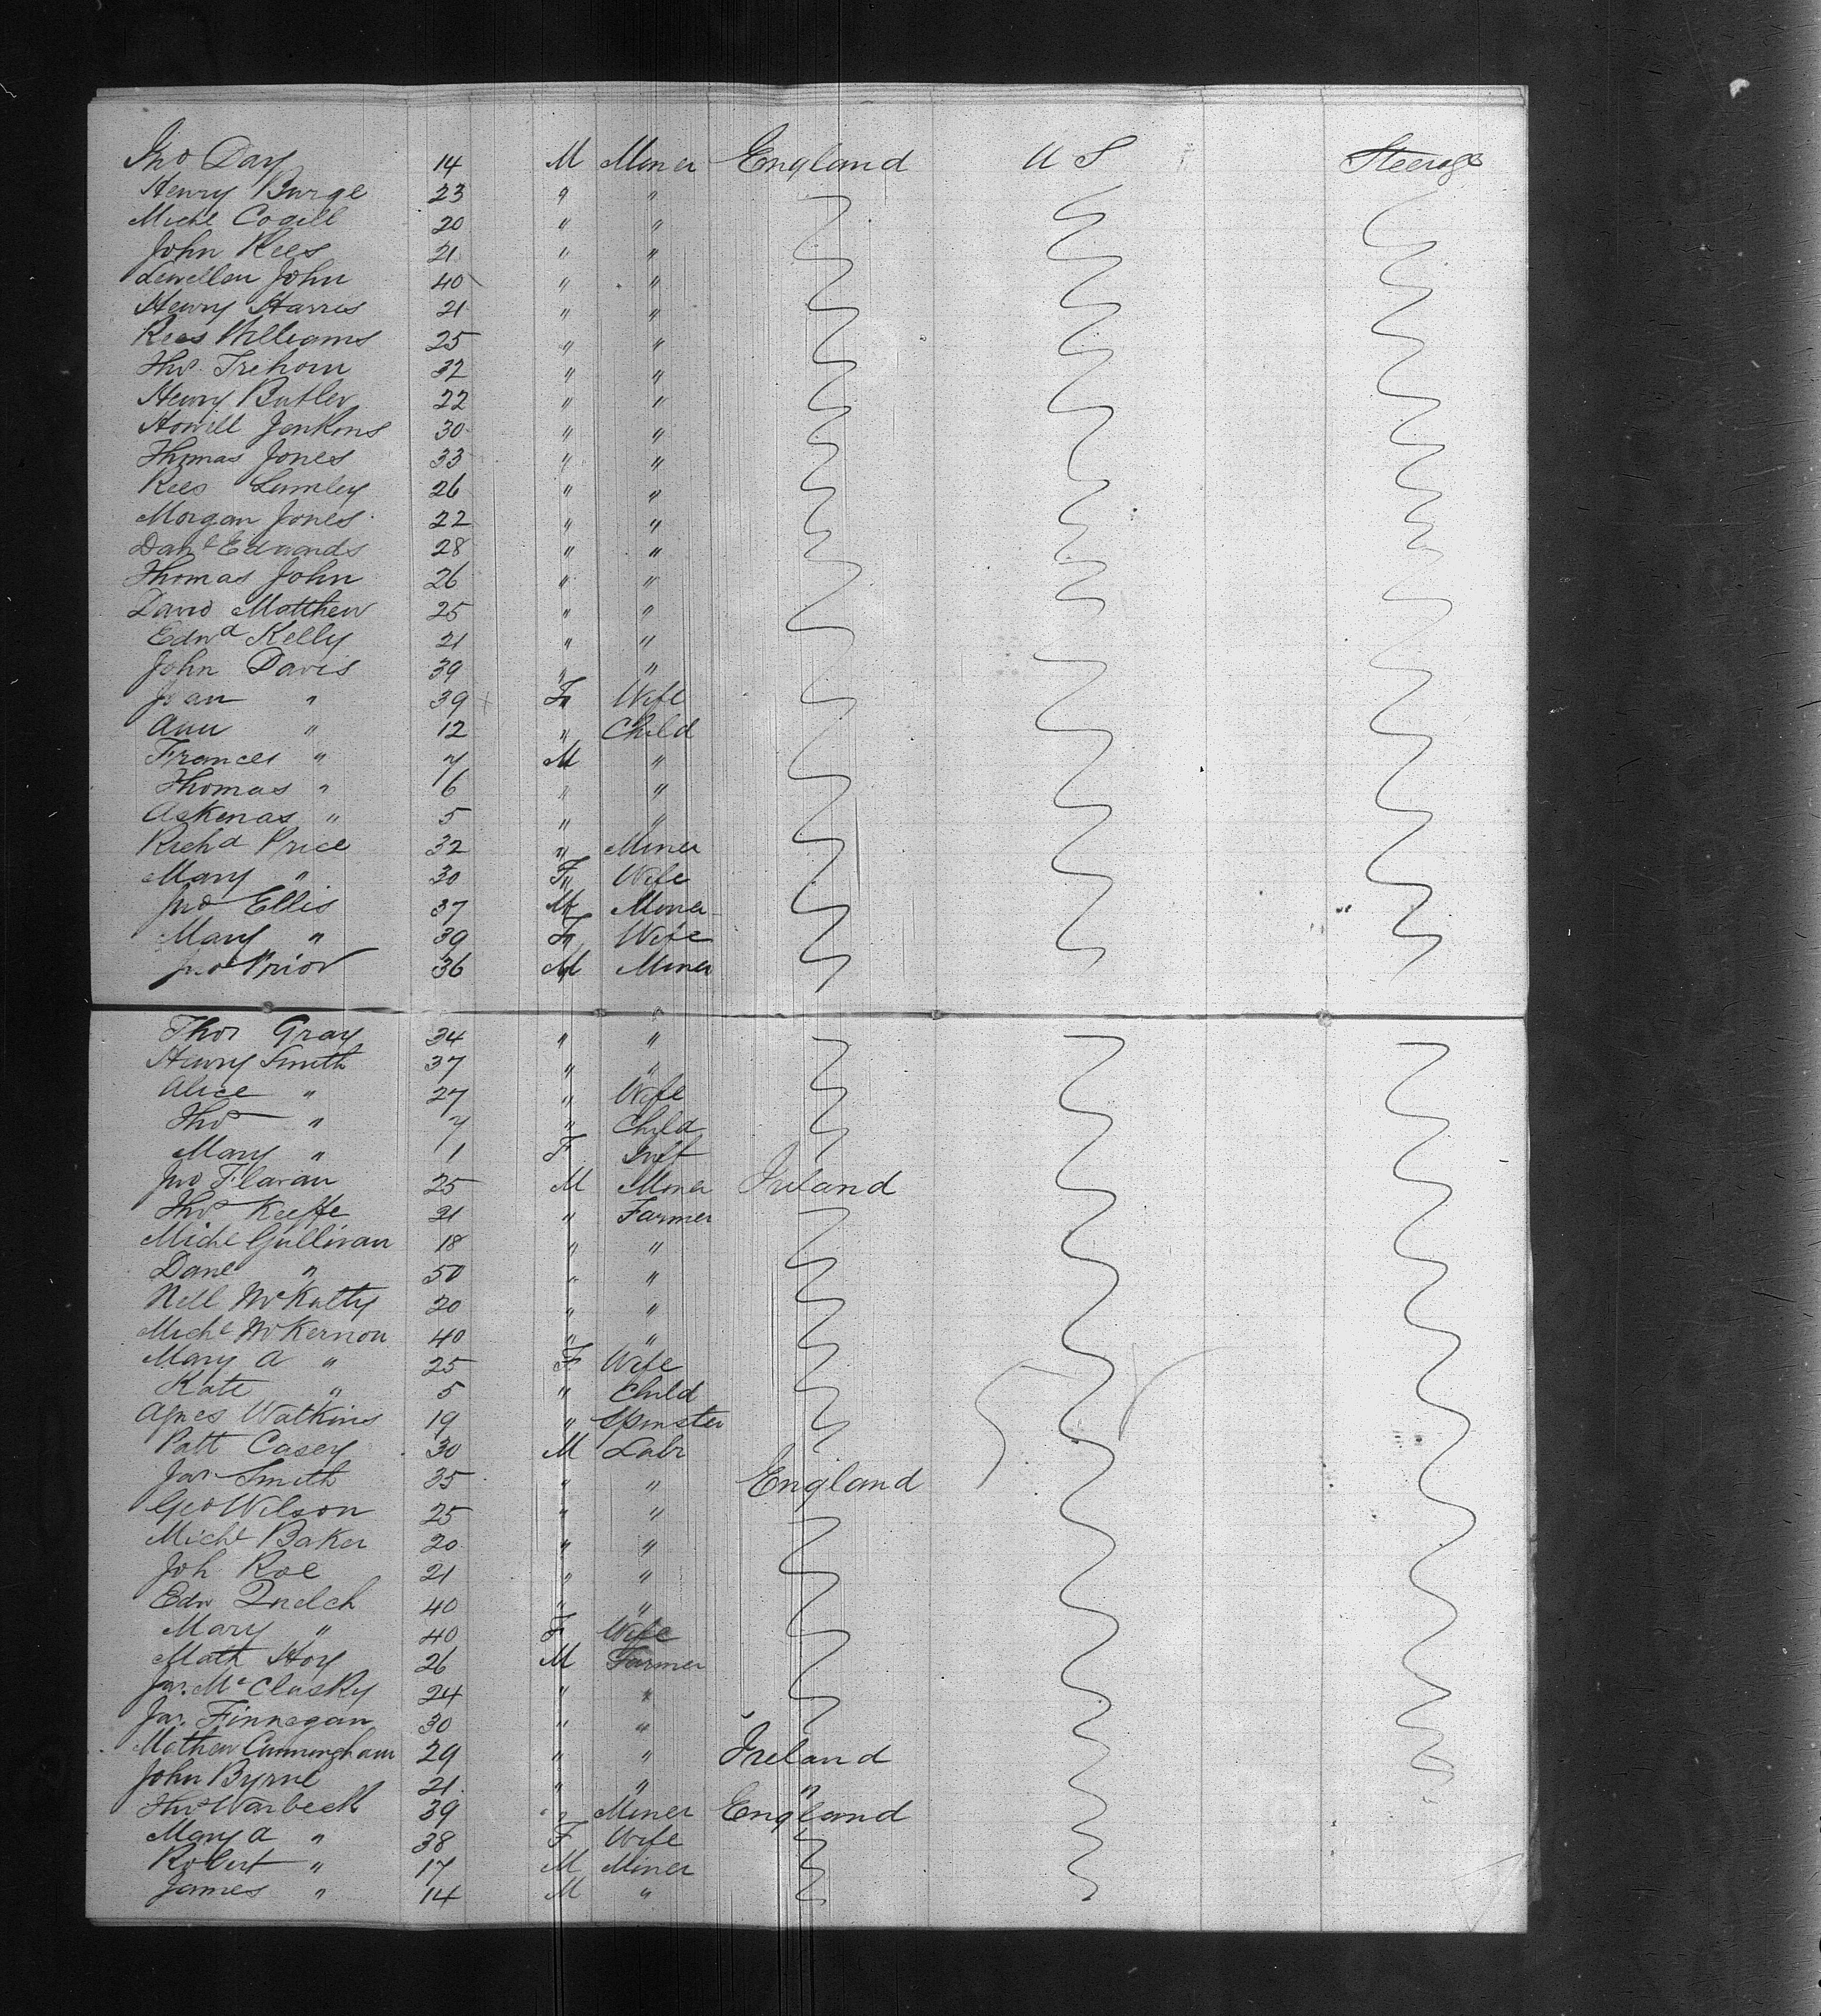 Jno Day 14 M Miner England U S Steerage
Henry Burge 23 " "
Michl Cogill 20 " "
John Rees 21 " "
Lewellen John 40 " "
Henry Harris 21 " "
Rees Williams 25 " "
Thos. Trehorn 32 " "
Henry Butler 22 " "
Howill Jenkins 30 " "
Thomas Jones 33 " "
Rees Lumley 26 " "
Morgan Jones 22 " "
Danl Edwards 28 " "
Thomas John 26 " "
David Matthew 25 " "
Edwd Kelly 21 " "
John Davis 39 " "
Jean " 39 F " Wife
Ann " 12 " Child
Frances " 7 M "
Thomas " 6 " "
Askenas " 5 " "
Richd Price 32 " Miner
Mary " 30 F " Wife
Jno Ellis 37 M " Miner
Mary " 39 F " Wife
Jno Prior 36 M Miner
Thos Gray 34 " "
Henry Smith 37 " "
Alice " 27 " Wife
Thos " 7 " Child
Mary " 1 F Inft
Jno Flavan 25 M Miner Ireland
Thos Keeffe 21 " Farmer
Michl Gullivan 18 " "
Danl " 50 " "
Nell McKulty 20 " "
Michl McKernon 40 " "
Mary A " 25 F Wife
Kate " 5 " Child
Agnes Watkins 19 " Spinster
Patt Casey 30 M Labr
Jas Smith 35 " " England
Geo Wilson 25 " "
Michl Baker 20 " "
Joh Roe 21 " "
Edw 40 " "
Mary " 40 F Wife
Math Hoy 26 M Farmer
Jas. McClusky 24 " "
Jas. Finnegan 30 " "
Mathew Cunningham 29 " " Ireland
John Byrne 21 " " "
Thos Warbeck 39 " Miner England
Mary A " 38 F Wife
Robert " 17 M Miner
James " 14 M "